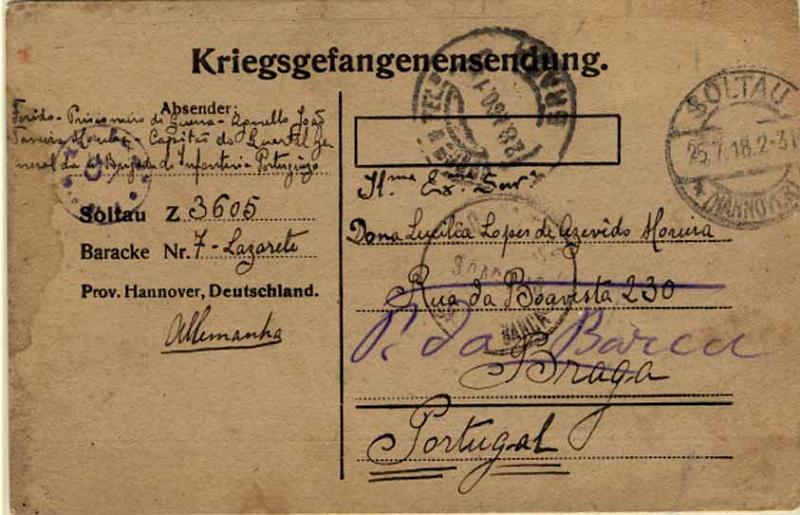 Kriegsgefangenensendung.
Absender:
Ferido - Prisioneiro de Guerra - Agnello João
Moreira - Capitão do Quartel Ge
neral da Brigada d'infantaria Portugueza
Soltau Z 3605
Baracke Nr. 7 - Lazarete
Prov. Hannover, Deutschland.
Allemanha
SOLTAU
25.7.18.2-3
*(HANNOVER)
BRAGA
Il.ma Ex.ma Snr.a
Dona Lucilia Lopes de Azevêdo Moreira
Rua da Boavista 230
P. da Barca
Braga
Portugal